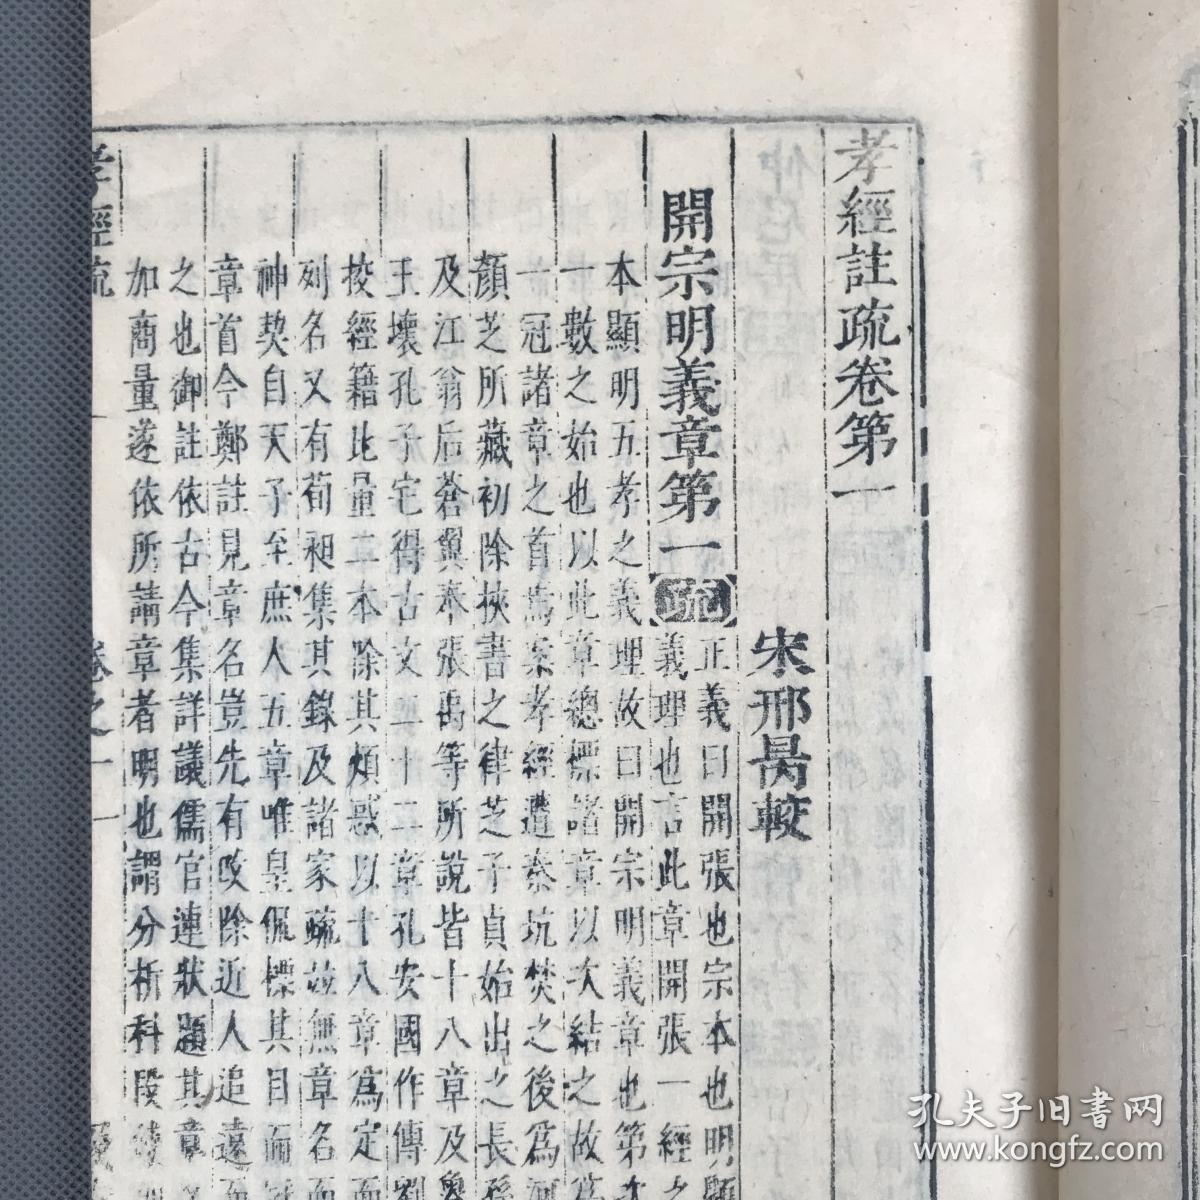 孝經註疏卷第一
宋邢昺較
開宗明義章第一
疏
正義曰開張也宗本也明顯
義理也言此章開張一經之
本顯明五孝之義理故曰開宗明義章也第次
一數之始也以此章總標諸章以次結之故為
一冠諸章之首焉案孝經遭秦坑焚之後為河
顏芝所藏初除挾書之律芝子貞始出之長孫
及江翁后蒼翼奉張禹等所說皆十八章及魯
王壞孔子宅得古文二十二章孔安國作傳劉
挍經籍比量二本除其煩惑以十八章為定而
列名又有荀昶集其錄及諸家疏並無章名而
神契自天子至庶人五章唯皇侃標其目而冠
章首今鄭註見章名豈先有改除近人追遠而
之也御註依古今集詳議儒官連狀題其章
加商量遂依所請章者明也謂分析科段
孝經疏
卷之一
一
孔夫子旧書网
www.kongfz.com